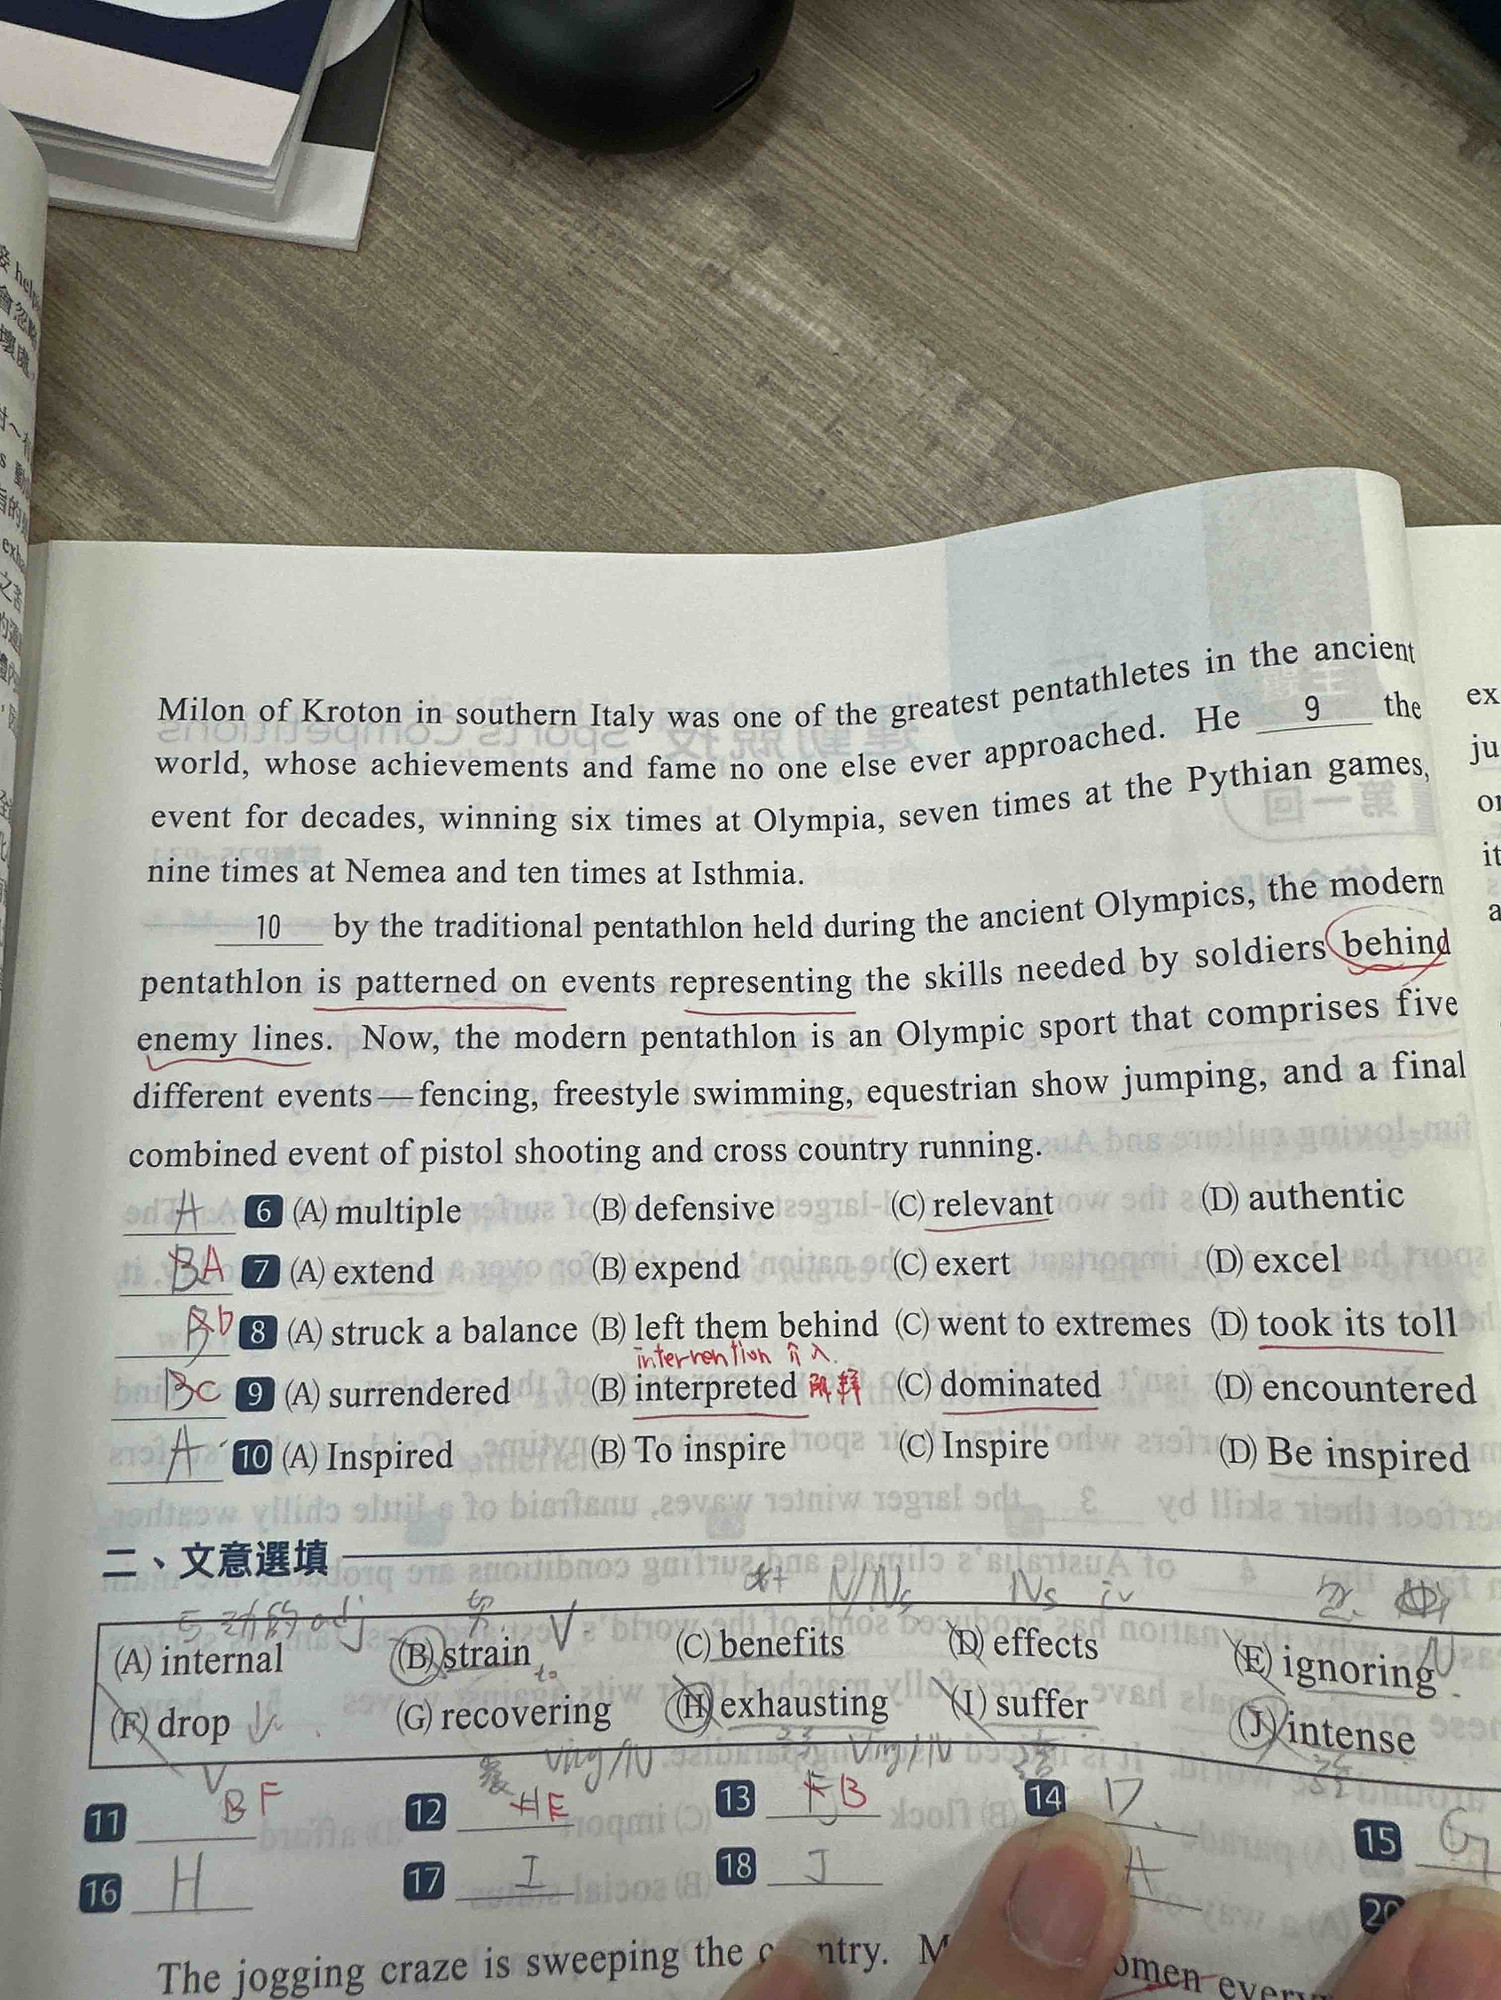 Milon of Kroton in southern Italy was one of the greatest pentathletes in the ancient
world, whose achievements and fame no one else ever approached. He 9 the
event for decades, winning six times at Olympia, seven times at the Pythian games,
nine times at Nemea and ten times at Isthmia.
10 by the traditional pentathlon held during the ancient Olympics, the modern
pentathlon is patterned on events representing the skills needed by soldiers behind
enemy lines. Now, the modern pentathlon is an Olympic sport that comprises five
different events—fencing, freestyle swimming, equestrian show jumping, and a final
combined event of pistol shooting and cross country running.
A 6 (A) multiple (B) defensive (C) relevant (D) authentic
BA 7 (A) extend (B) expend (C) exert (D) excel
D 8 (A) struck a balance (B) left them behind (C) went to extremes (D) took its toll
intervention 介入
BC 9 (A) surrendered (B) interpreted (C) dominated (D) encountered
A 10 (A) Inspired (B) To inspire (C) Inspire (D) Be inspired
二、文意選填
N/Ns Ns iv
adj
(A) internal (B) strain V (C) benefits (D) effects (E) ignoring
to
(F) drop (G) recovering (H) exhausting (I) suffer (J) intense
V Ving/N Ving/N
11 B F 12 H E 13 F B 14 D 15 G
16 H 17 I 18 J A 20
The jogging craze is sweeping the